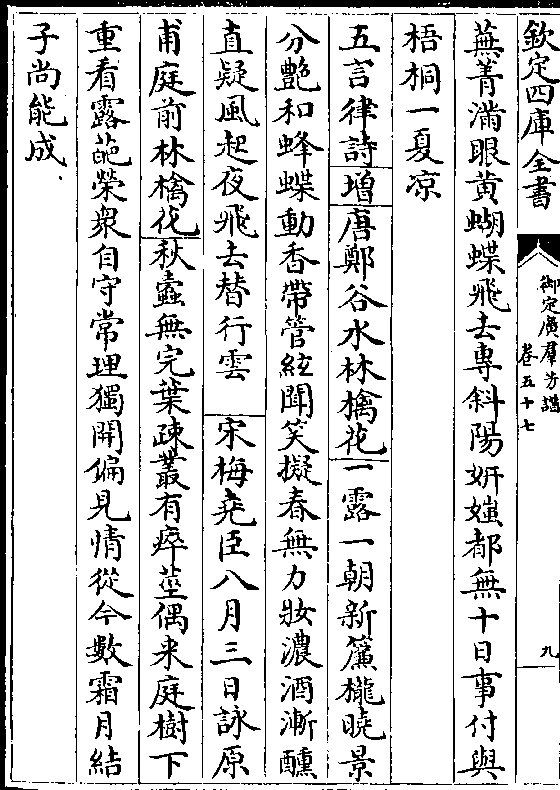 欽定四庫全書
御定廣羣芳譜
卷五十七
九
蕪菁滿眼黄蝴蝶飛去專斜陽妍媸都無十日事付與
梧桐一夏凉
五言律詩增唐鄭谷水林檎花一露一朝新簾櫳曉景
分艷和蜂蝶動香帶管絃聞笑擬春無力妝濃酒漸醺
直疑風起夜飛去替行雲 宋梅堯臣八月三日詠原
甫庭前林檎花秋蠧無完葉疎叢有瘁莖偶来庭樹下
重看露葩榮衆自守常理獨開偏見情從今數霜月結
子尚能成